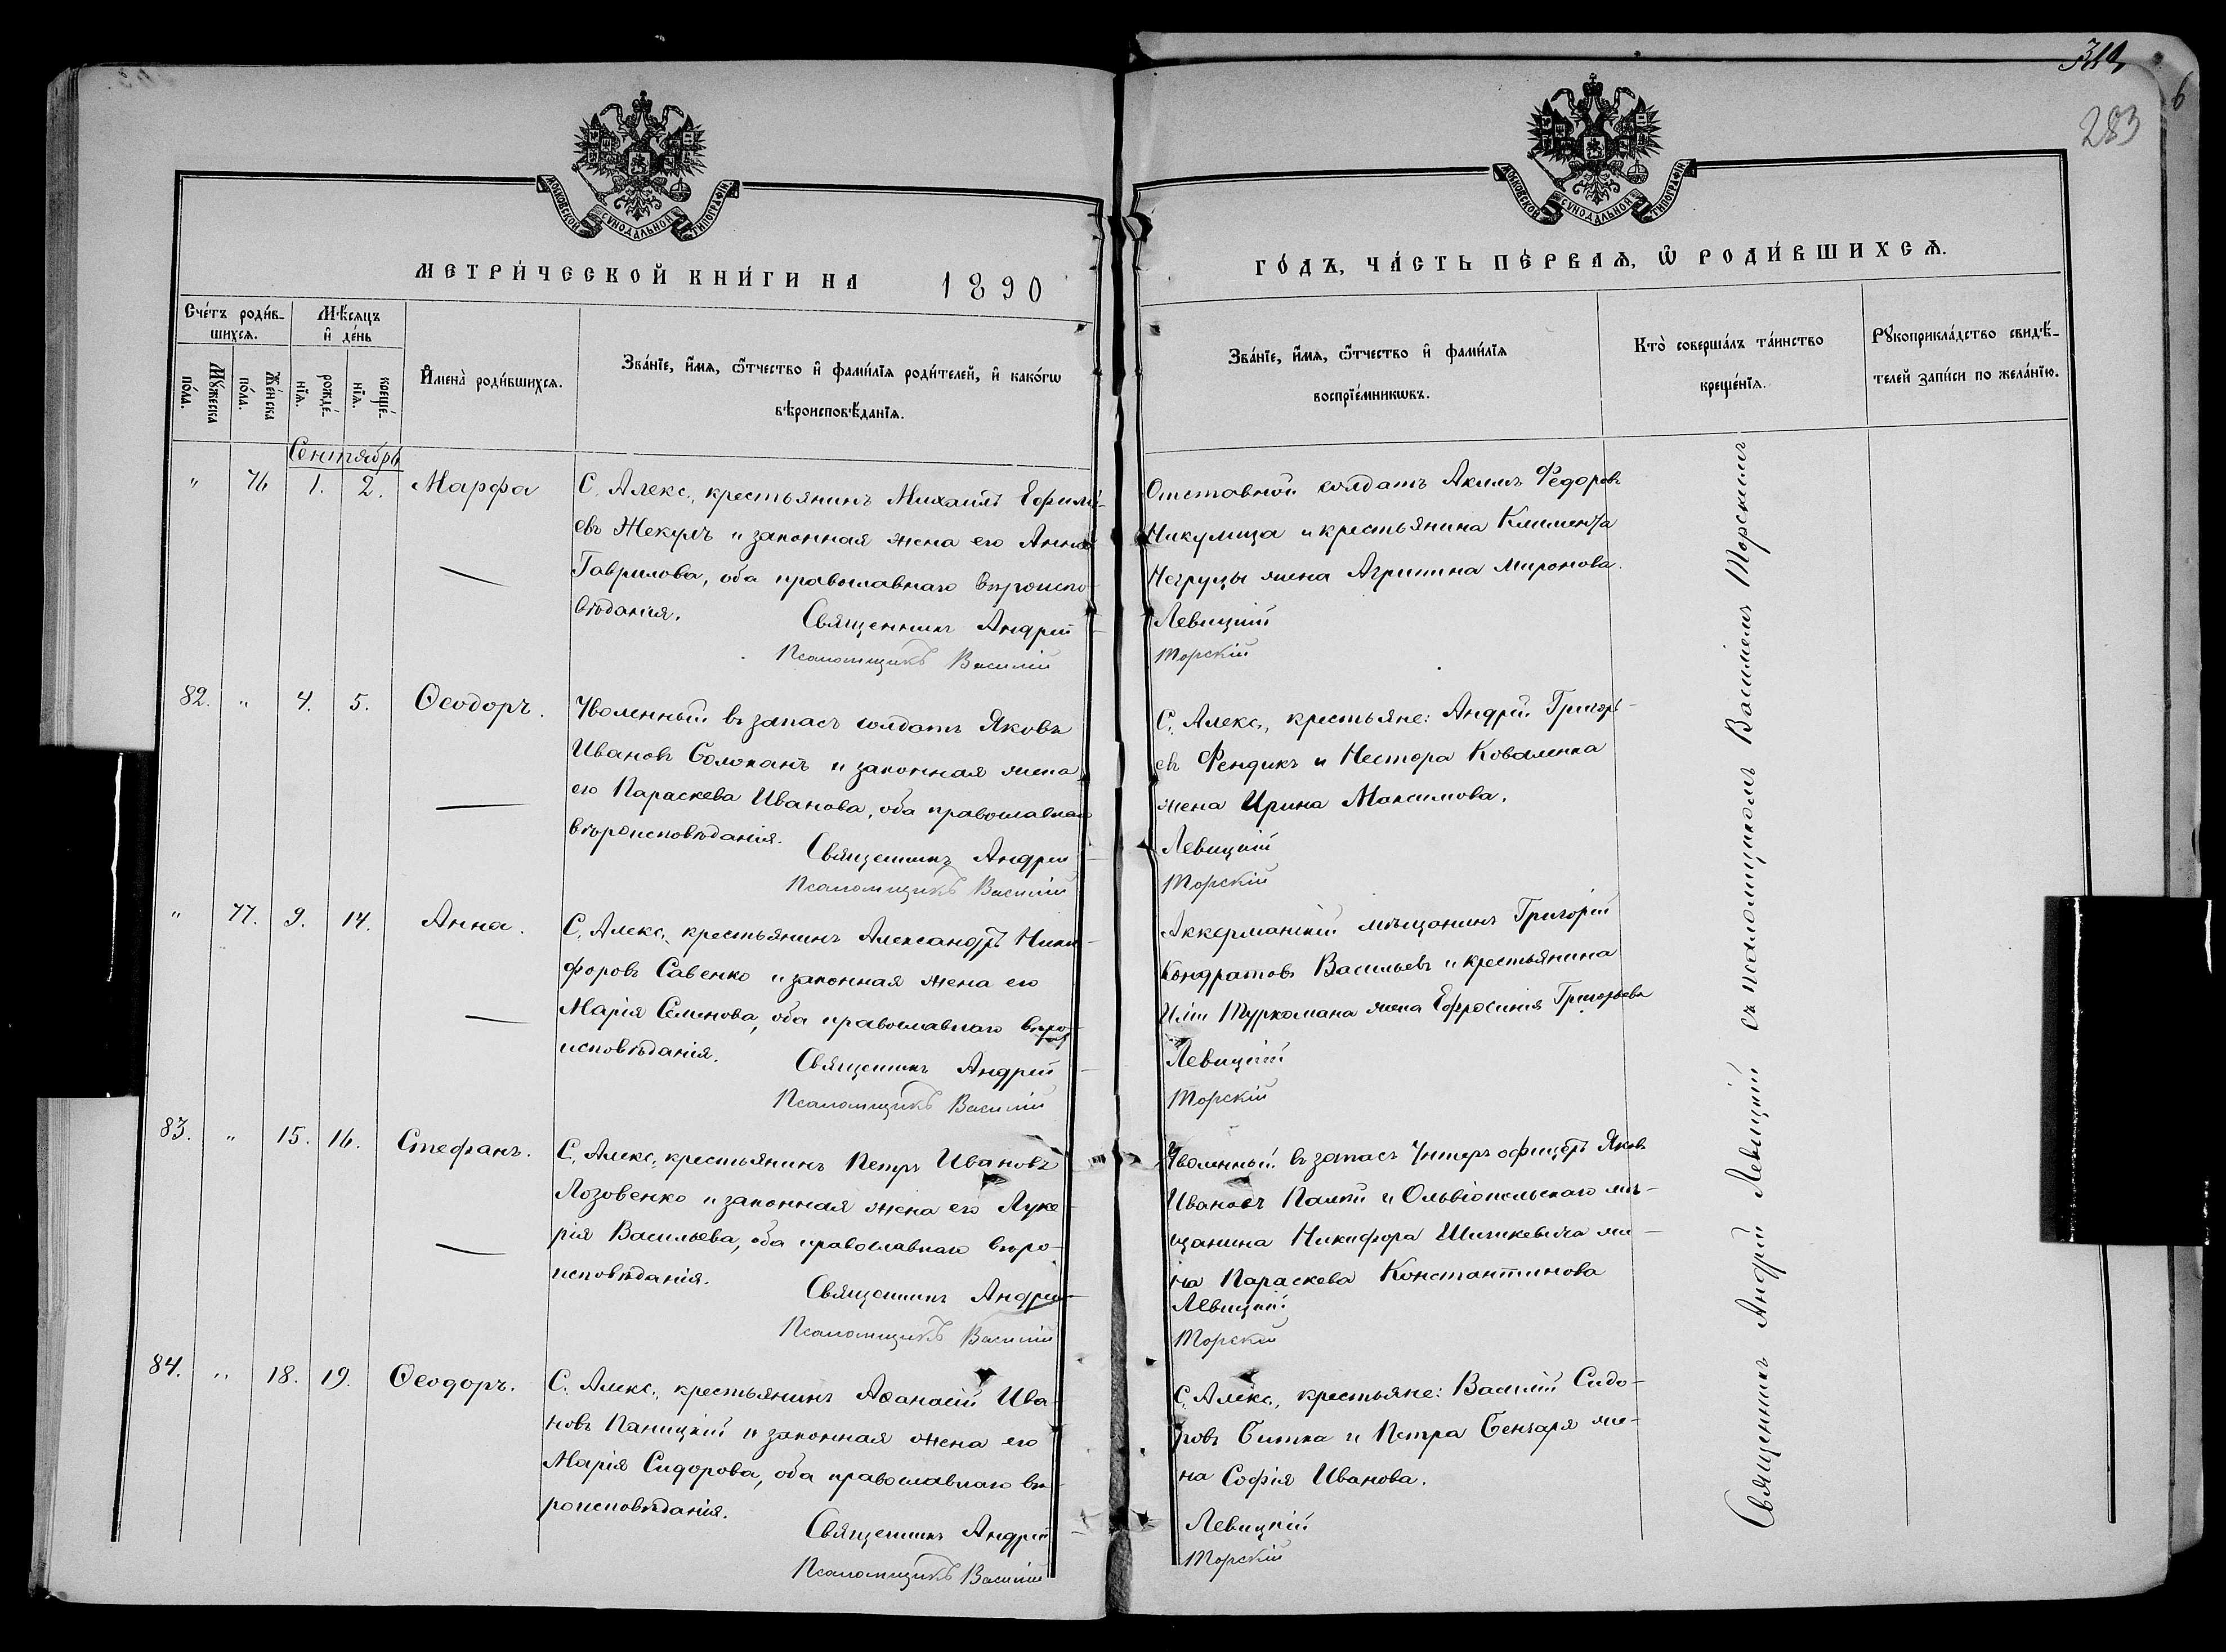 312
283
6
МОСКОВСКОЙ СѴНОДАЛЬНОЙ ТИПОГРАФІИ.
МОСКОВСКОЙ СѴНОДАЛЬНОЙ ТИПОГРАФІИ.
МЕТРИ́ЧЕСКОЙ КНИ́ГИ НА 1890
ГО́ДЪ, ЧА́СТЬ ПЕ́РВАѦ, Ѡ҆ РОДИ́ВШИХСѦ.
Сче́тъ роди́в-
шихсѧ.
Мѣ́сѧцъ
и҆ де́нь
Мꙋ́жеска
по́ла.
Же́нска
по́ла.
рожде́-
нїѧ.
креще́-
нїѧ.
И҆мена̀ роди́вшихсѧ.
Зва́нїе, и҆́мѧ, ѻ҆́тчество и҆ фами́лїѧ роди́телей, и҆ како́гѡ
вѣроисповѣ́данїѧ.
Зва́нїе, и҆́мѧ, ѻ҆́тчество и҆ фами́лїѧ
воспрїе́мникѡвъ.
Кто̀ соверша́лъ та́инство
креще́нїѧ.
Рꙋкоприкла́дство свидѣ́-
телей за́писи по жела́нїю.
Сентябрь
" 76 1. 2. Марфа
С. Алекс., крестьянинъ Михаилъ Ефимі-
евъ Жекулъ и законная жена его Анна
Гаврилова, оба православнаго вѣроиспо-
вѣданія.
Священникъ Андрей
Псаломщикъ Василій
Отставной солдатъ Акимъ Федоровъ
Никулица и крестьянина Климента
Негруцы жена Агрипина Миронова.
Левицкій
Торскій
82. " 4. 5. Ѳеодоръ.
Уволенный въ запасъ солдатъ Яковъ
Ивановъ Солоканъ и законная жена
его Параскева Иванова, оба православнаго
вѣроисповѣданія.
Священникъ Андрей
Псаломщикъ Василій
С. Алекс., крестьяне: Андрей Григорь-
евъ Фендикъ и Нестора Коваленка
жена Ирина Максимова.
Левицкій
Торскій
" 77. 9. 14. Анна.
С. Алекс., крестьянинъ Александръ Ники-
форовъ Савенко и законная жена его
Марія Семенова, оба православнаго вѣро-
исповѣданія.
Священникъ Андрей
Псаломщикъ Василій
Аккерманскій мѣщанинъ Григорій
Кондратовъ Васильевъ и крестьянина
Иліи Туркомана жена Ефросинія Григорьева
Левицкій
Торскій
83. " 15. 16. Стефанъ.
С. Алекс., крестьянинъ Петръ Ивановъ
Лозовенко и законная жена его Луке-
рія Васильева, оба православнаго вѣро-
исповѣданія.
Священникъ Андрей
Псаломщикъ Василій
Уволенный въ запасъ Унтеръ офицеръ Яковъ
Ивановъ Палій и Ольвіопольскаго мѣ-
щанина Никифора Шишкевича же-
на Параскева Константинова
Левицкій
Торскій
84. " 18. 19. Ѳеодоръ.
С. Алекс., крестьянинъ Аѳанасій Ива-
новъ Паницкій и законная жена его
Марія Сидорова, оба православнаго вѣ-
роисповѣданія.
Священникъ Андрей
Псаломщикъ Василій
С. Алекс., крестьяне: Василій Сидо-
ровъ Битка и Петра Бенгаря же-
на Софія Иванова.
Левицкій
Торскій
Священникъ Андрей Левицкій съ псаломщикомъ Василіемъ Торскимъ